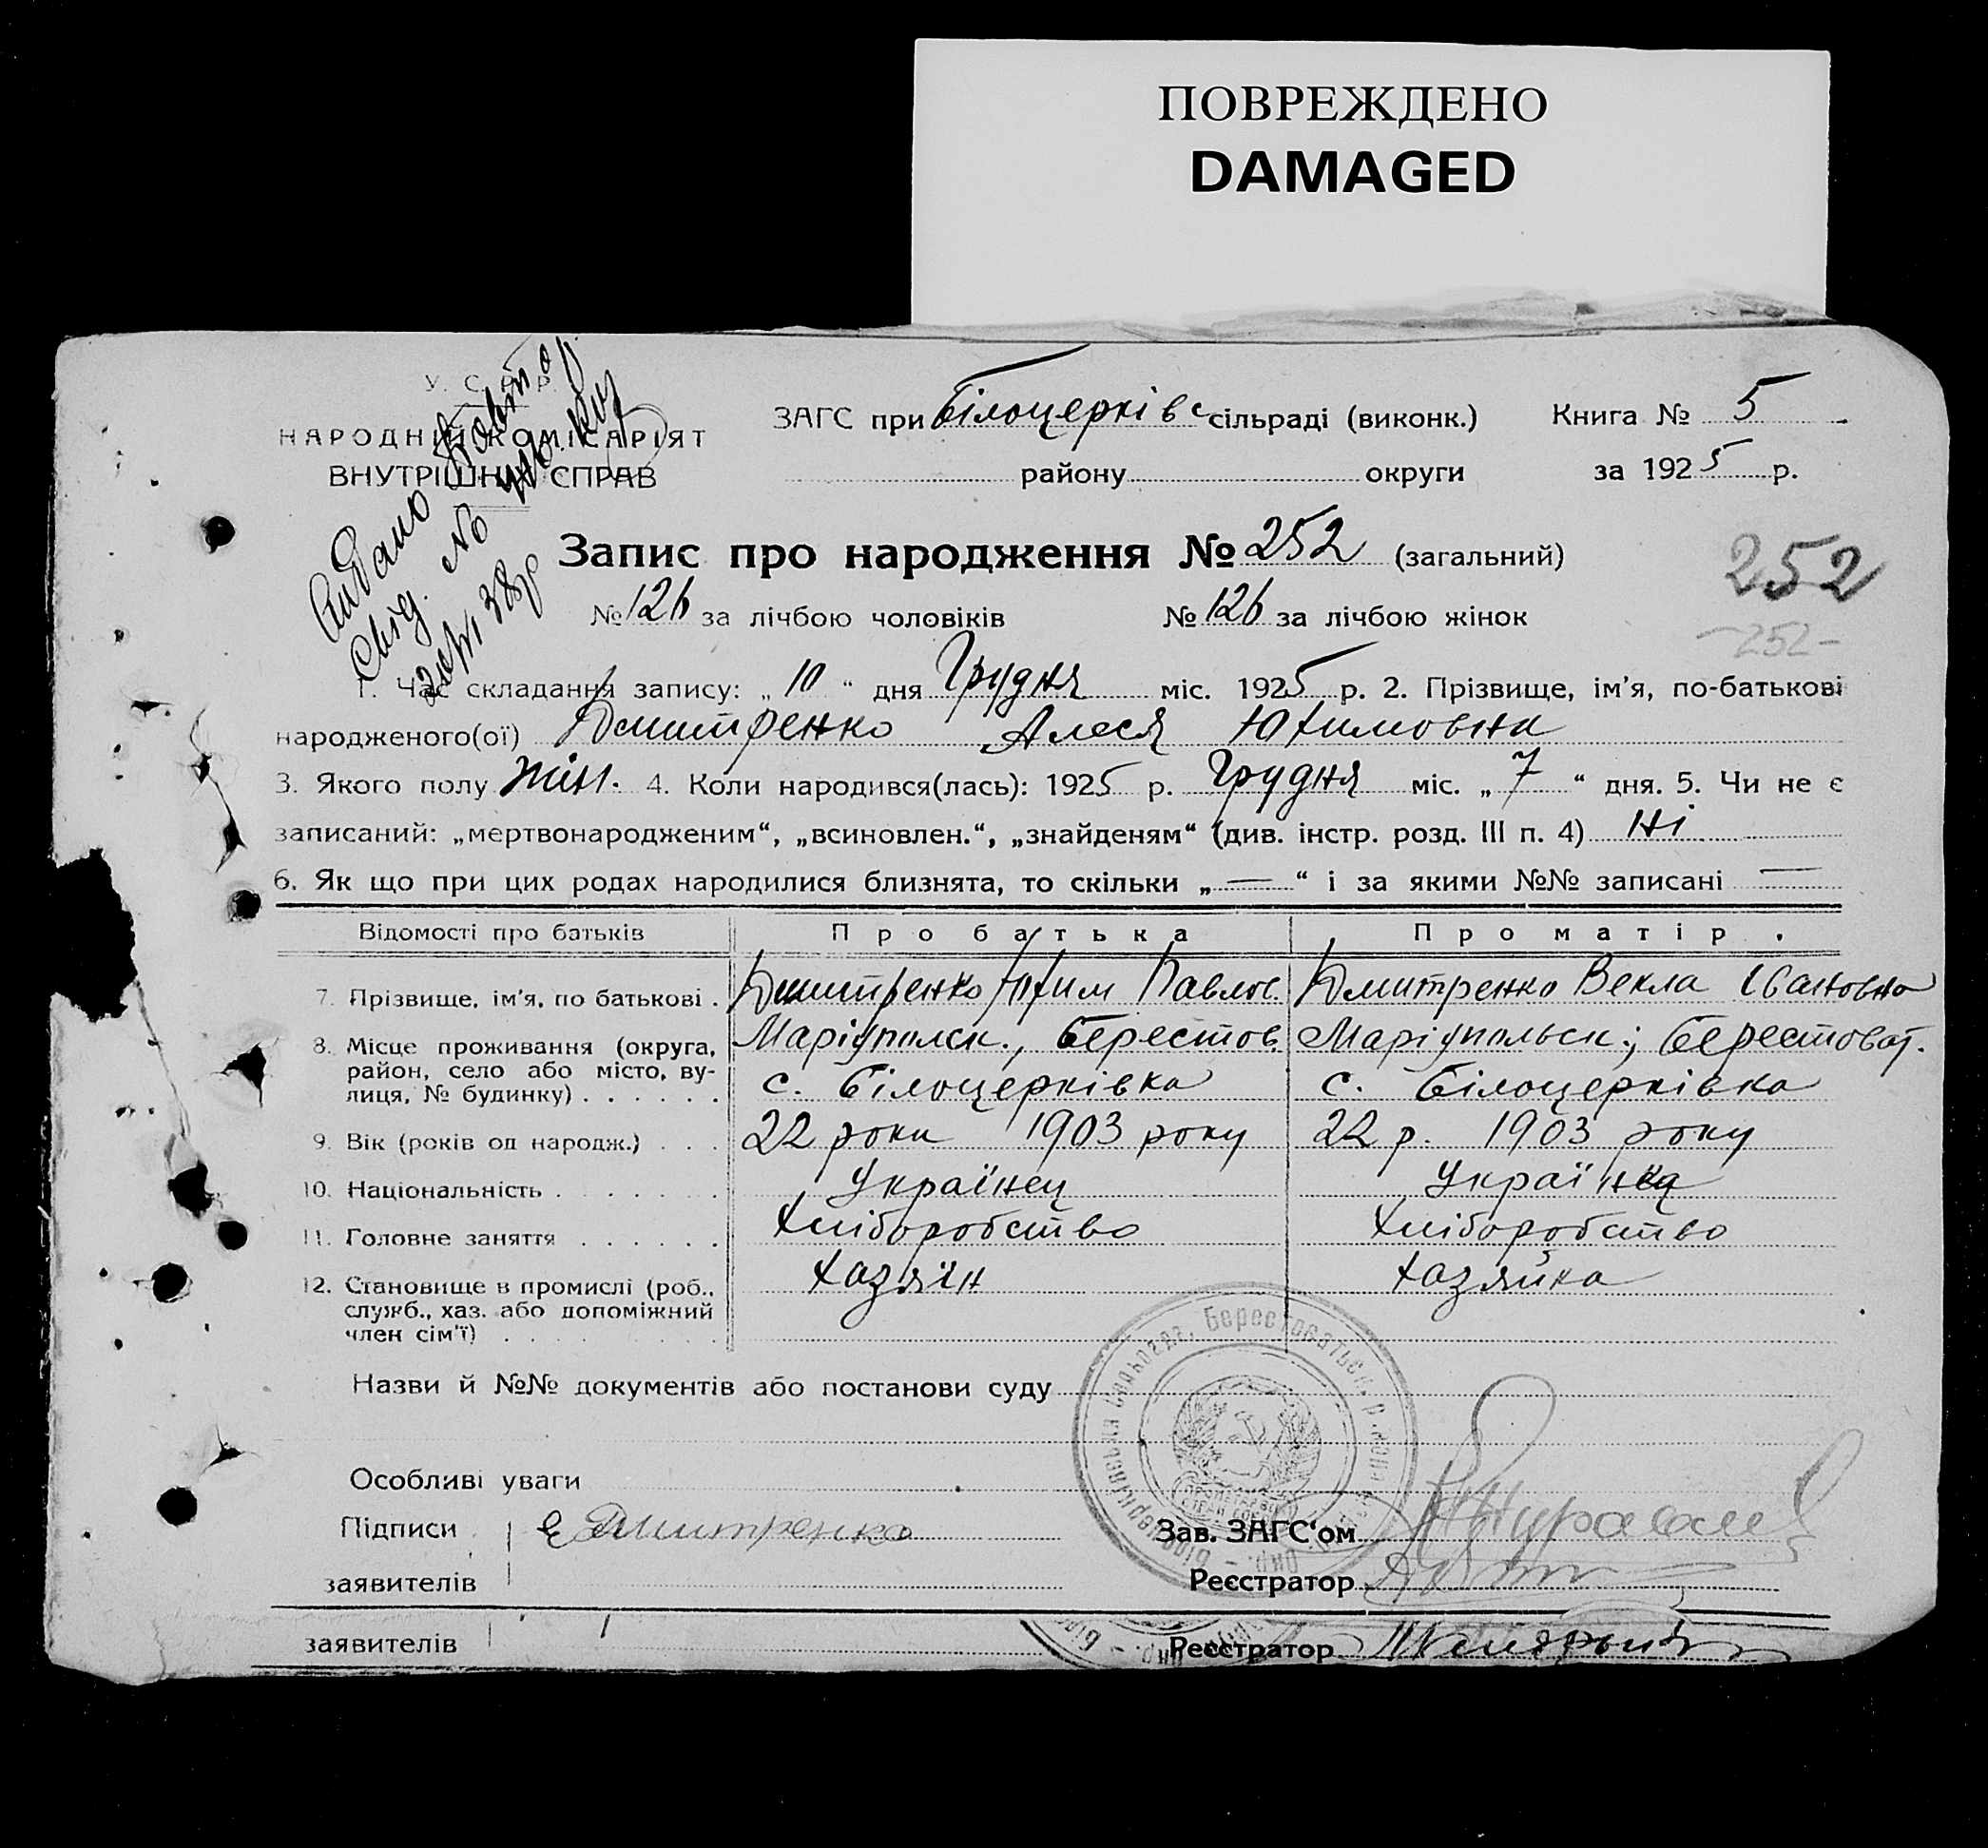 ПОВРЕЖДЕНО
DAMAGED
У. С. Р. Р.
НАРОДНІЙ КОМІСАРІЯТ
ВНУТРІШНІХ СПРАВ
Видано
Свід. №
38р
ЗАГС при Білоцерківс сільраді (виконк.) Книга № 5
району округи за 1925 р.
Запис про народження № 252 (загальний)
252
№ 126 за лічбою чоловіків № 126 за лічбою жінок
-252-
1. Час складання запису: „10“ дня Грудня міс. 1925 р. 2. Прізвище, ім'я, по-батькові
народженого(ої) Дмитренко Алеся Юхимовна
3. Якого полу жін. 4. Коли народився(лась): 1925 р. Грудня міс. „7“ дня. 5. Чи не є
записаний: „мертвонародженим“, „всиновлен.“, „знайденям“ (див. інстр. розд. III п. 4) Ні
6. Як що при цих родах народилися близнята, то скільки „—“ і за якими №№ записані —
Відомості про батьків Про батька Про матір.
7. Прізвище, ім'я, по батькові . Дмитренко Юхим Павлов. Дмитренко Векла Івановна
8. Місце проживання (округа, Маріупольск., Берестов. Маріупольск.; Берестоват.
район, село або місто, ву- с. Білоцерківка с. Білоцерківка
лиця, № будинку) . . . . . .
9. Вік (років од народж.) . . . 22 роки 1903 року 22 р. 1903 року
10. Національність . . . . . . . Українец Українка
11. Головне заняття . . . . . . Хліборобство Хліборобство
12. Становище в промислі (роб., Хазяїн Хазяйка
служб., хаз. або допоміжний
член сім'ї) . . . . . . . . .
Берестоватьск. р.
Назви й №№ документів або постанови суду
Особливі уваги
Підписи Є Дмитренко Зав. ЗАГС'ом
заявителів Реєстратор
заявителів Реєстратор